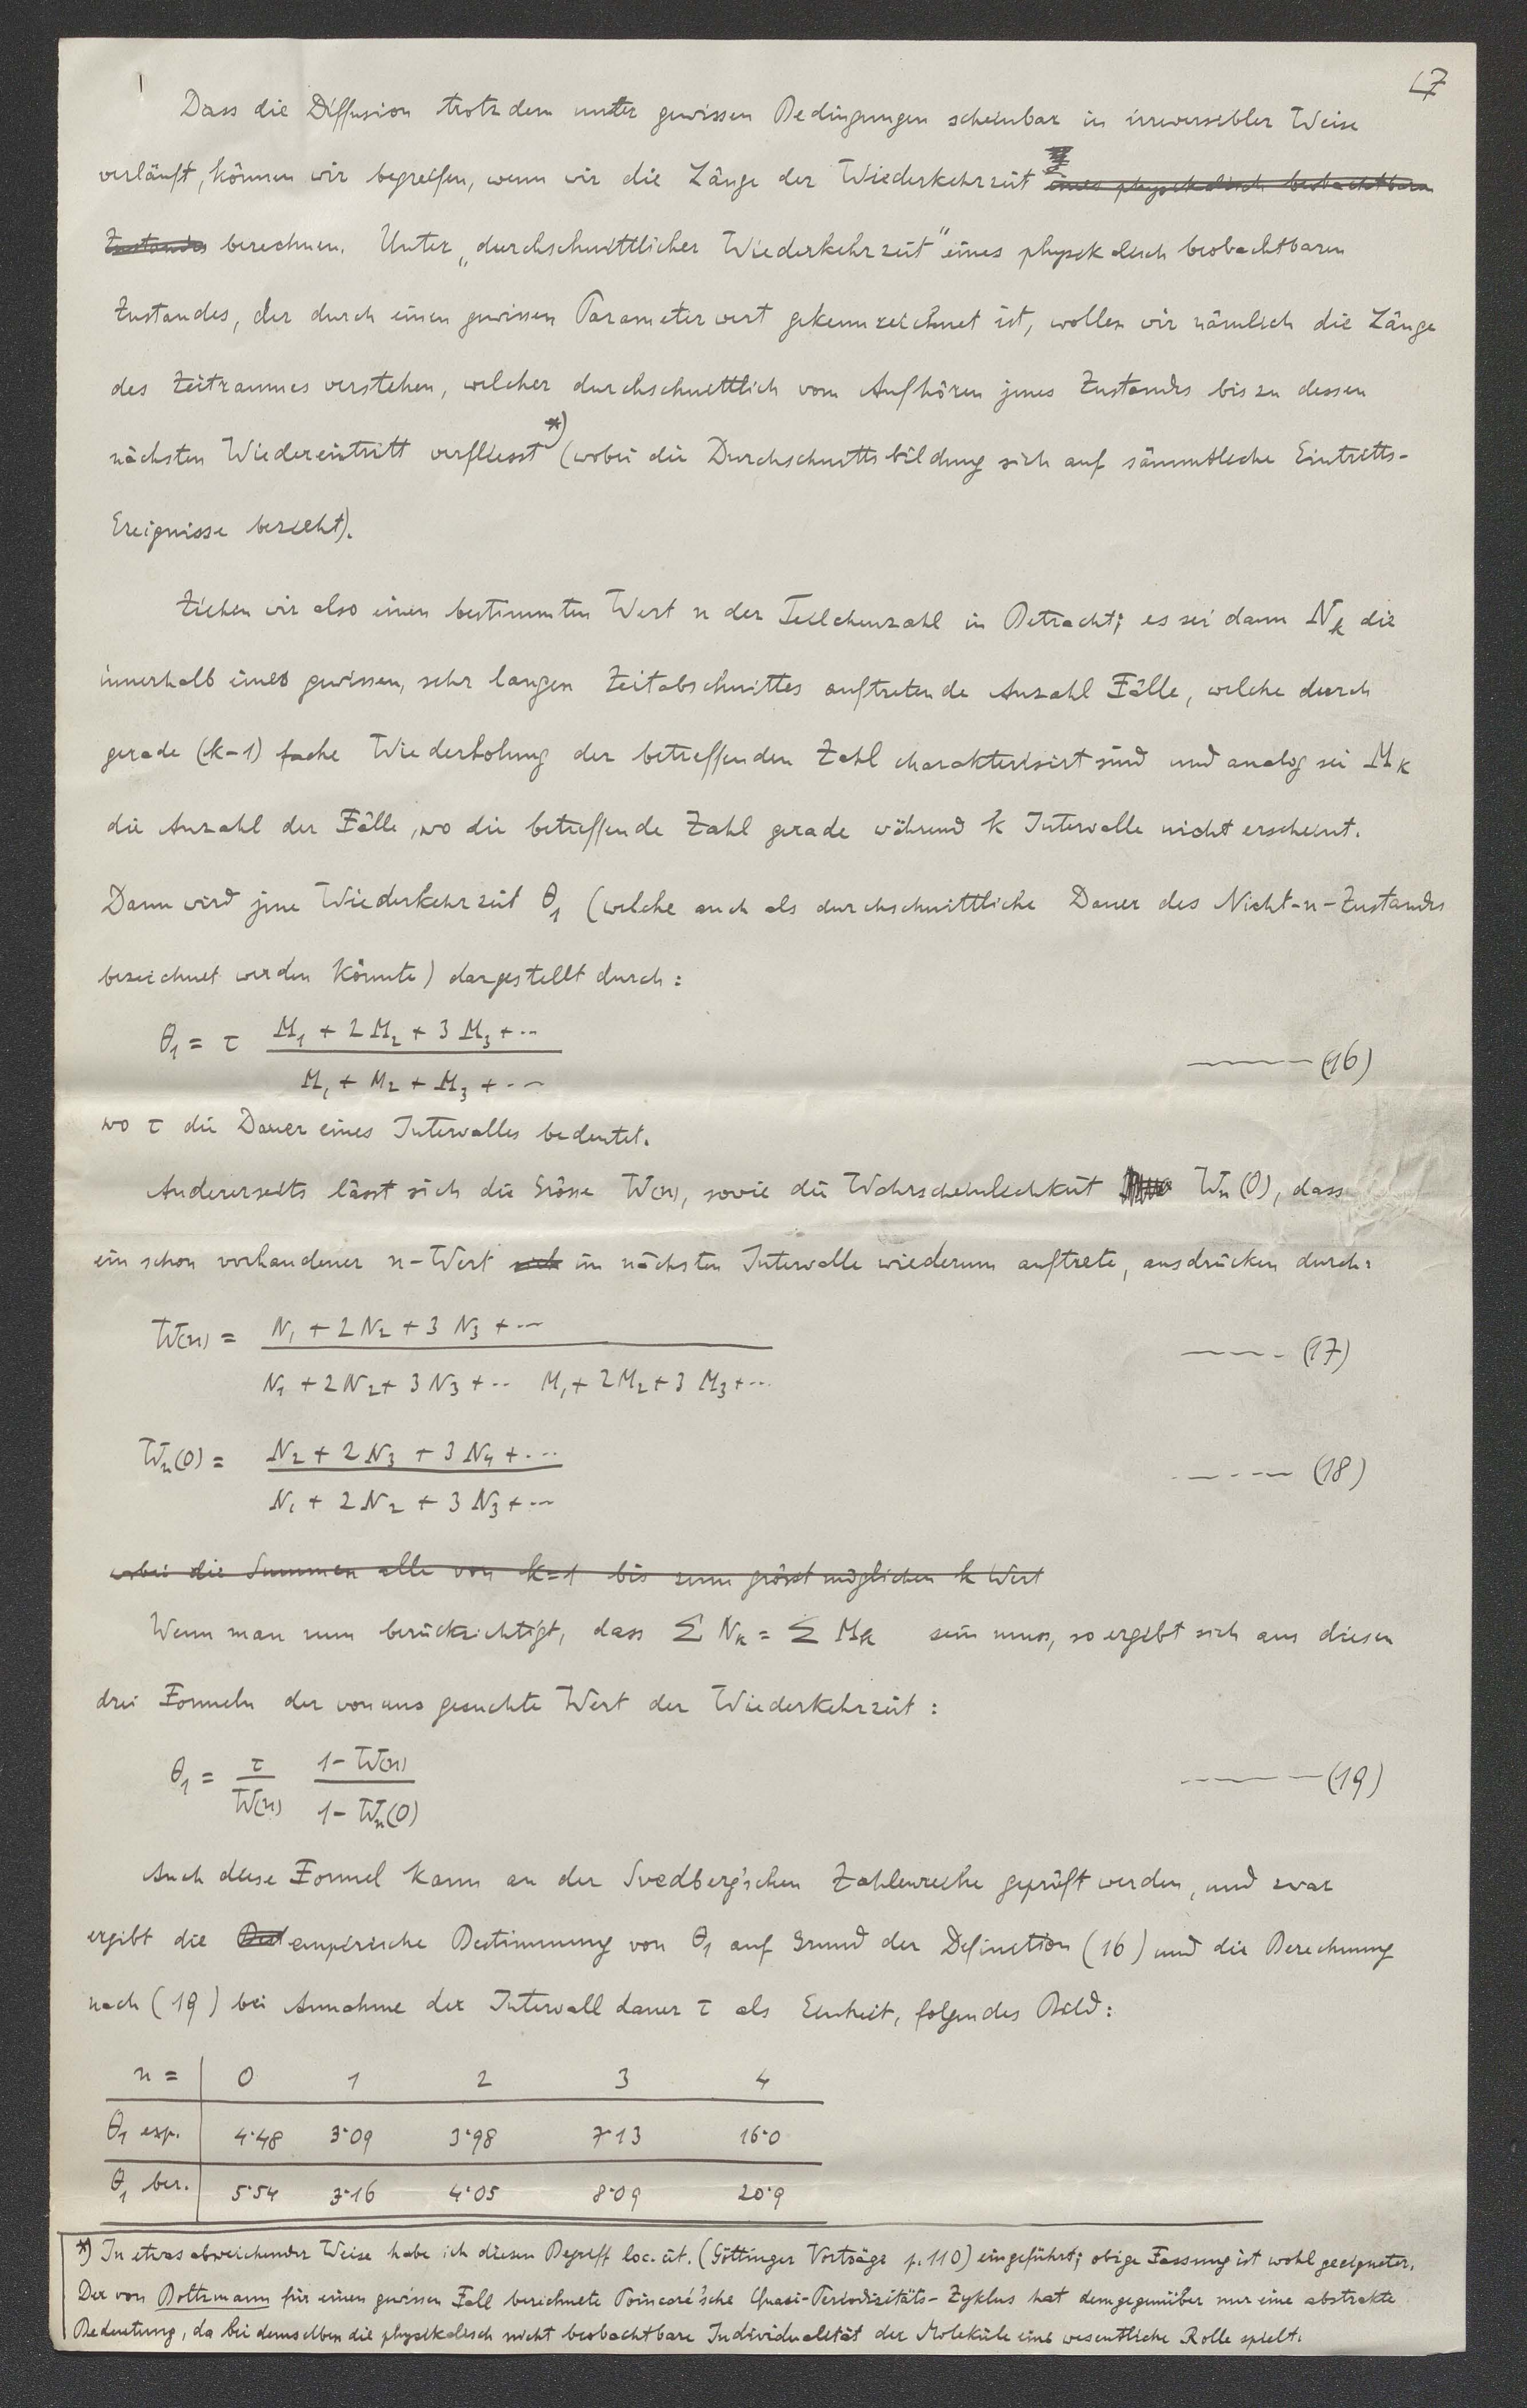 17
Dass die Diffusion trotzdem unter gewissen Bedingungen scheinbar in irreversibler Weise
verläuft, können wir begreifen, wenn wir die Länge der Wiederkehrzeit eines physikalisch beobachtbaren
Zustandes berechnen. Unter „durchschnittlicher Wiederkehrzeit" eines physikalisch beobachtbaren
Zustandes, der durch einen gewissen Parameterwert gekennzeichnet ist, wollen wir nämlich die Länge
des Zeitraumes verstehen, welcher durchschnittlich vom Aufhören jenes Zustandes bis zu dessen
nächsten Wiedereintritt verfliesst *) (wobei die Durchschnittsbildung sich auf sämmtliche Eintritts-
Ereignisse bezieht).
Ziehen wir also einen bestimmten Wert n der Teilchenzahl in Betracht; es sei dann N_k die
innerhalb eines gewissen, sehr langen Zeitabschnittes auftretende Anzahl Fälle, welche durch
gerade (k-1) fache Wiederholung der betreffenden Zahl charakterisirt sind und analog sei M_k
die Anzahl der Fälle, wo die betreffende Zahl gerade während k Intervalle nicht erscheint.
Dann wird jene Wiederkehrzeit θ₁ (welche auch als durchschnittliche Dauer des Nicht-n-Zustandes
bezeichnet werden könnte) dargestellt durch:
θ₁ = τ (M₁ + 2 M₂ + 3 M₃ + ···) / (M₁ + M₂ + M₃ + ···) ——— (16)
wo τ die Dauer eines Intervalles bedeutet.
Andererseits lässt sich die Grösse W(n), sowie die Wahrscheinlichkeit W_n(0), dass
ein schon vorhandener n-Wert im nächsten Intervalle wiederum auftrete, ausdrücken durch:
W(n) = (N₁ + 2 N₂ + 3 N₃ + ···) / (N₁ + 2 N₂ + 3 N₃ + ·· M₁ + 2 M₂ + 3 M₃ + ···) ——— (17)
W_n(0) = (N₂ + 2 N₃ + 3 N₄ + ···) / (N₁ + 2 N₂ + 3 N₃ + ···) ——— (18)
wobei die Summen alle von k=1 bis zum grösst möglichen k Wert
Wenn man nun berücksichtigt, dass Σ N_k = Σ M_k sein muss, so ergibt sich aus diesen
drei Formeln der von uns gesuchte Wert der Wiederkehrzeit:
θ₁ = τ / W(n) · (1 - W(n)) / (1 - W_n(0)) ——— (19)
Auch diese Formel kann an der Svedberg'schen Zahlenreihe geprüft werden, und zwar
ergibt die empirische Bestimmung von θ₁ auf Grund der Definition (16) und die Berechnung
nach (19) bei Annahme der Intervalldauer τ als Einheit, folgendes Bild:
n = 0 1 2 3 4
θ₁ exp. 4·48 3·09 3·98 7·13 16·0
θ₁ ber. 5·54 3·16 4·05 8·09 20·9
*) In etwas abweichender Weise habe ich diesen Begriff loc. cit. (Göttinger Vorträge p. 110) eingeführt; obige Fassung ist wohl geeigneter.
Der von Boltzmann für einen gewissen Fall berechnete Poincaré'sche Quasi-Periodizitäts-Zyklus hat demgegenüber nur eine abstrakte
Bedeutung, da bei demselben die physikalisch nicht beobachtbare Individualität der Moleküle eine wesentliche Rolle spielt.